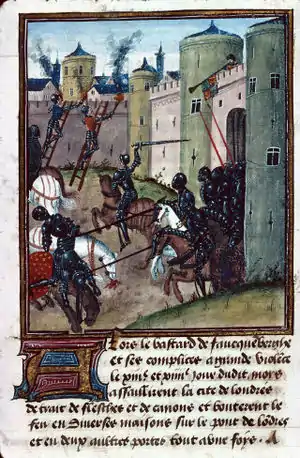 Lors le bastard de faucquēberghe
et ses complices a grande violēce
le xiiiᵉ et xiiiiᵉ jour dudit moys
assaullirent la cite de londres
de trait de flesches et de canons et bouterent le
feu en diverses maisons sur le pont de lōdres
et en deux aultres portes tout a une foys. A